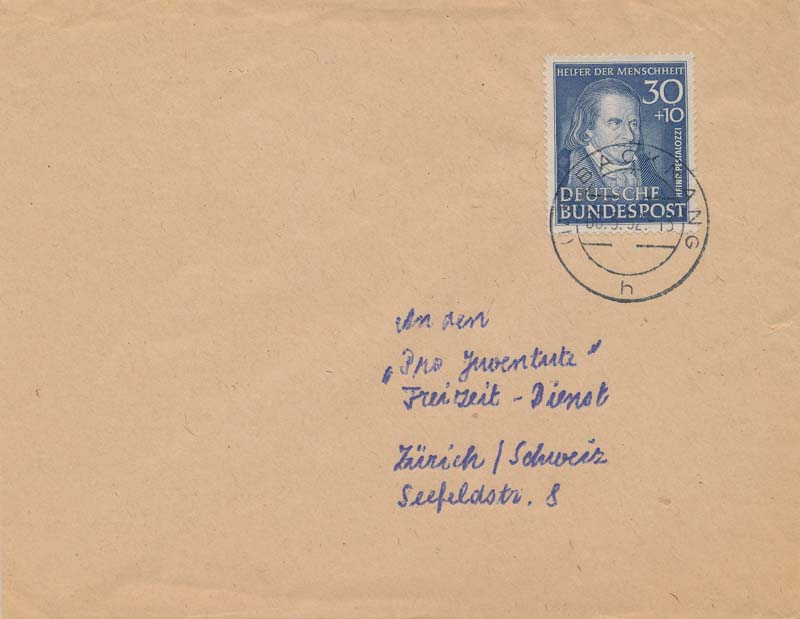 HELFER DER MENSCHHEIT
30
+10
HEINR. PESTALOZZI
DEUTSCHE
BUNDESPOST
BACKNANG
h
An den
„Pro Juventute"
Freizeit - Dienst
Zürich / Schweiz
Seefeldstr. 8